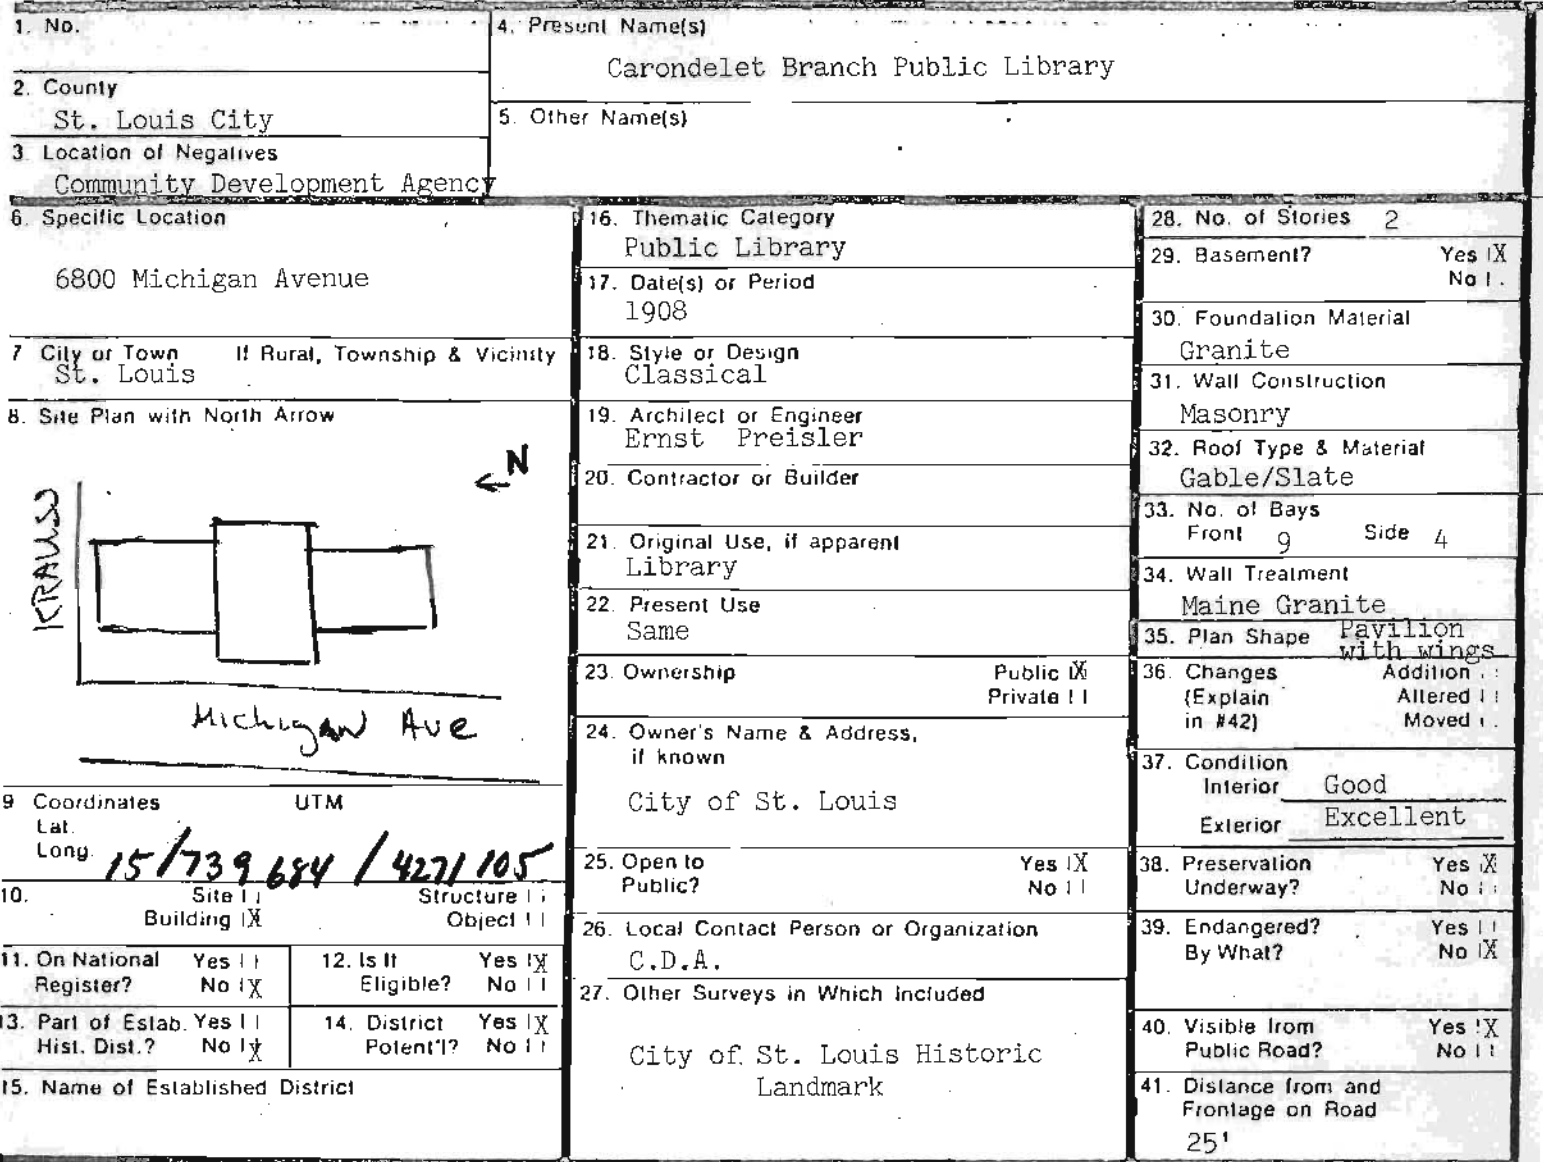 1. No.
4. Present Name(s)
Carondelet Branch Public Library
2. County
St. Louis City
5. Other Name(s)
3. Location of Negatives
Community Development Agency
6. Specific Location
6800 Michigan Avenue
7 City or Town If Rural, Township & Vicinity
St. Louis
8. Site Plan with North Arrow
N
KRAUSS
Michigan Ave
9 Coordinates UTM
Lat.
Long.
15/739684/4271105
10. Site Structure
Building X Object
11. On National Yes
Register? No X
12. Is It Yes X
Eligible? No
13. Part of Estab. Yes
Hist. Dist.? No X
14. District Yes X
Potent'l? No
15. Name of Established District
16. Thematic Category
Public Library
17. Date(s) or Period
1908
18. Style or Design
Classical
19. Architect or Engineer
Ernst Preisler
20. Contractor or Builder
21. Original Use, if apparent
Library
22. Present Use
Same
23. Ownership Public X
Private
24. Owner's Name & Address,
if known
City of St. Louis
25. Open to Yes X
Public? No
26. Local Contact Person or Organization
C.D.A.
27. Other Surveys in Which Included
City of St. Louis Historic
Landmark
28. No. of Stories 2
29. Basement? Yes X
No
30. Foundation Material
Granite
31. Wall Construction
Masonry
32. Roof Type & Material
Gable/Slate
33. No. of Bays
Front 9 Side 4
34. Wall Treatment
Maine Granite
35. Plan Shape Pavilion
with wings
36. Changes Addition
(Explain Altered
in #42) Moved
37. Condition
Interior Good
Exterior Excellent
38. Preservation Yes X
Underway? No
39. Endangered? Yes
By What? No X
40. Visible from Yes X
Public Road? No
41. Distance from and
Frontage on Road
25'